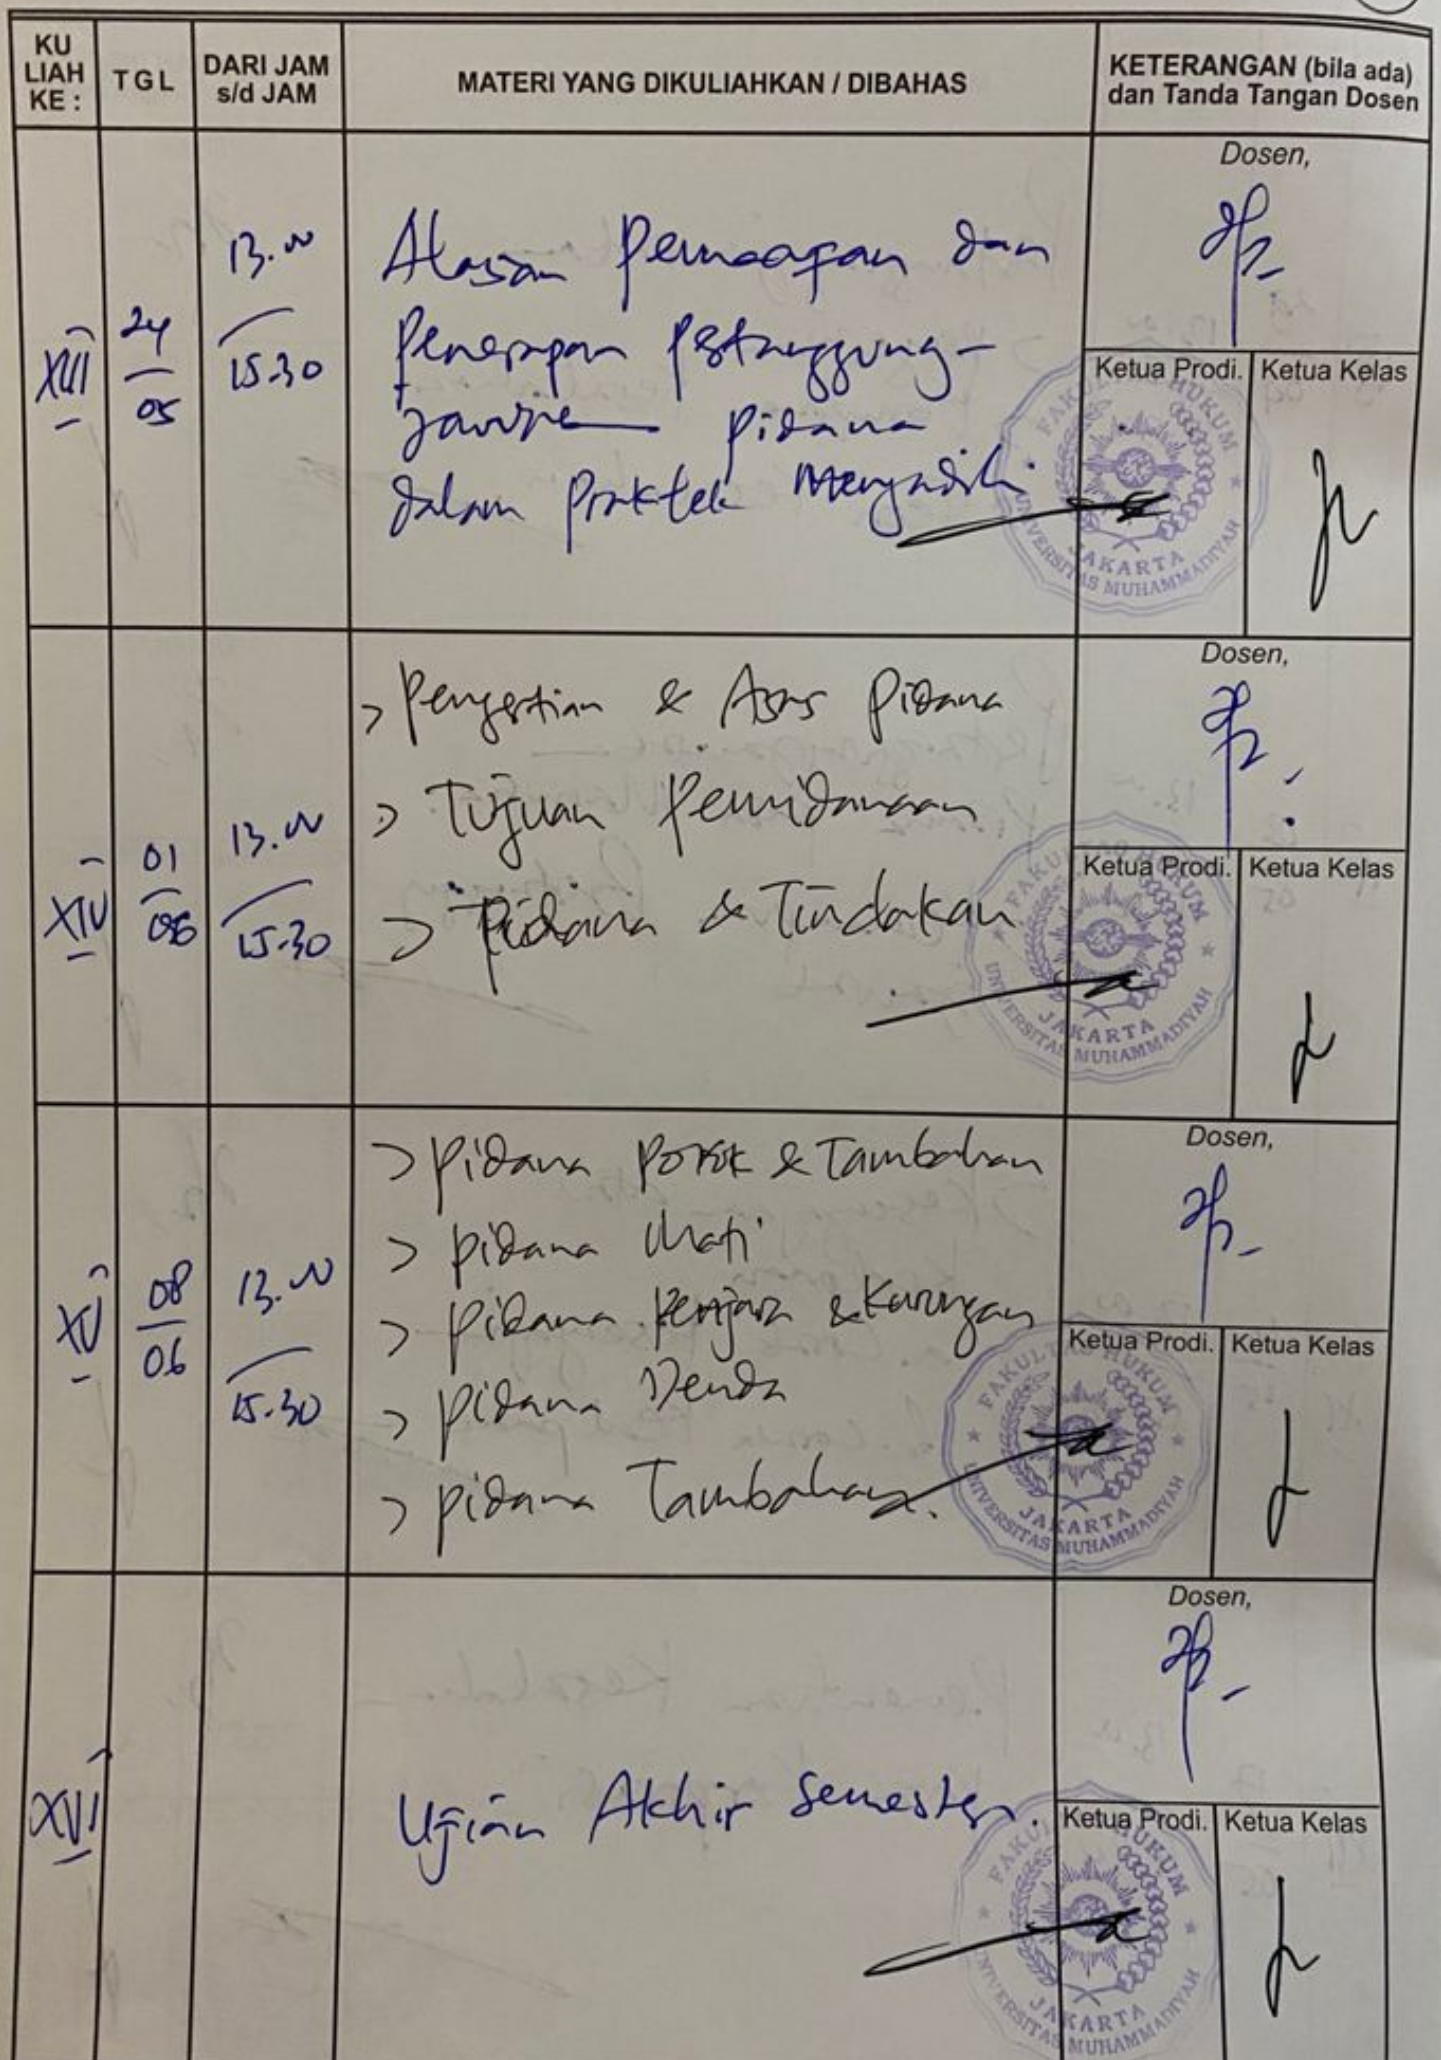 KU LIAH KE :
TGL
DARI JAM s/d JAM
MATERI YANG DIKULIAHKAN / DIBAHAS
KETERANGAN (bila ada) dan Tanda Tangan Dosen
XIII
24
05
13.00
15.30
Alasan Pemaafan dan
Penerapan Pertanggung-
jawaban pidana
dalam Praktek Mengadili
Dosen,
Ketua Prodi.
Ketua Kelas
FAKULTAS HUKUM
UNIVERSITAS MUHAMMADIYAH
JAKARTA
XIV
01
06
13.00
15.30
> Pengertian & Asas Pidana
> Tujuan Pemidanaan
> Pidana & Tindakan
Dosen,
Ketua Prodi.
Ketua Kelas
FAKULTAS HUKUM
UNIVERSITAS MUHAMMADIYAH
JAKARTA
XV
08
06
13.00
15.30
> Pidana Pokok & Tambahan
> Pidana Mati
> Pidana Penjara & Kurungan
> Pidana Denda
> Pidana Tambahan.
Dosen,
Ketua Prodi.
Ketua Kelas
FAKULTAS HUKUM
UNIVERSITAS MUHAMMADIYAH
JAKARTA
XVI
Ujian Akhir Semester.
Dosen,
Ketua Prodi.
Ketua Kelas
FAKULTAS HUKUM
UNIVERSITAS MUHAMMADIYAH
JAKARTA